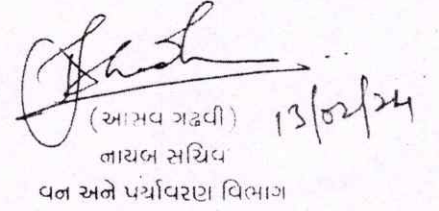 (આસવ ગઢવી) 13/02/24
નાયબ સચિવ
વન અને પર્યાવરણ વિભાગ